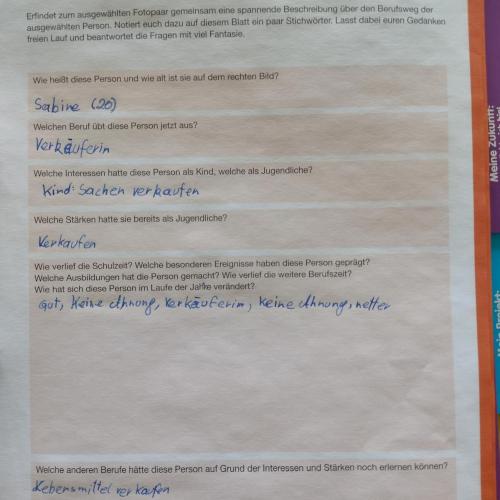 Erfindet zum ausgewählten Fotopaar gemeinsam eine spannende Beschreibung über den Berufsweg der
ausgewählten Person. Notiert euch dazu auf diesem Blatt ein paar Stichwörter. Lasst dabei euren Gedanken
freien Lauf und beantwortet die Fragen mit viel Fantasie.
Wie heißt diese Person und wie alt ist sie auf dem rechten Bild?
Sabine (20)
Welchen Beruf übt diese Person jetzt aus?
Verkäuferin
Welche Interessen hatte diese Person als Kind, welche als Jugendliche?
Kind: Sachen verkaufen
Welche Stärken hatte sie bereits als Jugendliche?
Verkaufen
Wie verlief die Schulzeit? Welche besonderen Ereignisse haben diese Person geprägt?
Welche Ausbildungen hat die Person gemacht? Wie verlief die weitere Berufszeit?
Wie hat sich diese Person im Laufe der Jahre verändert?
Gut, Keine Ahnung, Verkäuferin, Keine Ahnung, netter
Welche anderen Berufe hätte diese Person auf Grund der Interessen und Stärken noch erlernen können?
Lebensmittel verkaufen
Meine Zukunft: